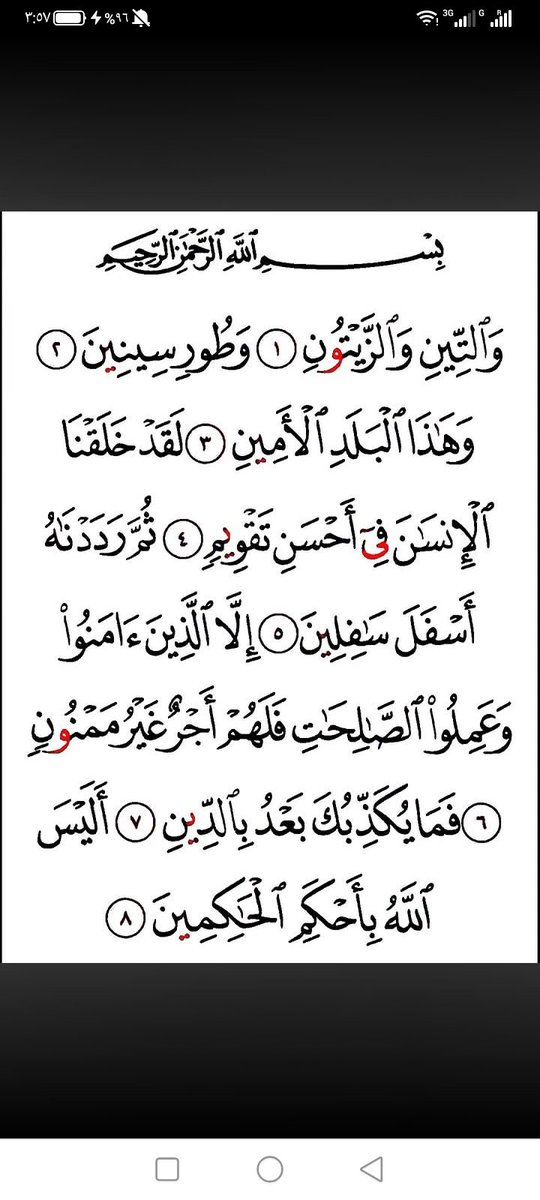 ٣:٥٧ %٩٦ 3G G R
بِسْمِ ٱللَّهِ ٱلرَّحْمَٰنِ ٱلرَّحِيمِ
وَٱلتِّينِ وَٱلزَّيْتُونِ ١ وَطُورِ سِينِينَ ٢
وَهَٰذَا ٱلْبَلَدِ ٱلْأَمِينِ ٣ لَقَدْ خَلَقْنَا
ٱلْإِنسَٰنَ فِىٓ أَحْسَنِ تَقْوِيمٍ ٤ ثُمَّ رَدَدْنَٰهُ
أَسْفَلَ سَٰفِلِينَ ٥ إِلَّا ٱلَّذِينَ ءَامَنُوا۟
وَعَمِلُوا۟ ٱلصَّٰلِحَٰتِ فَلَهُمْ أَجْرٌ غَيْرُ مَمْنُونٍ
٦ فَمَا يُكَذِّبُكَ بَعْدُ بِٱلدِّينِ ٧ أَلَيْسَ
ٱللَّهُ بِأَحْكَمِ ٱلْحَٰكِمِينَ ٨